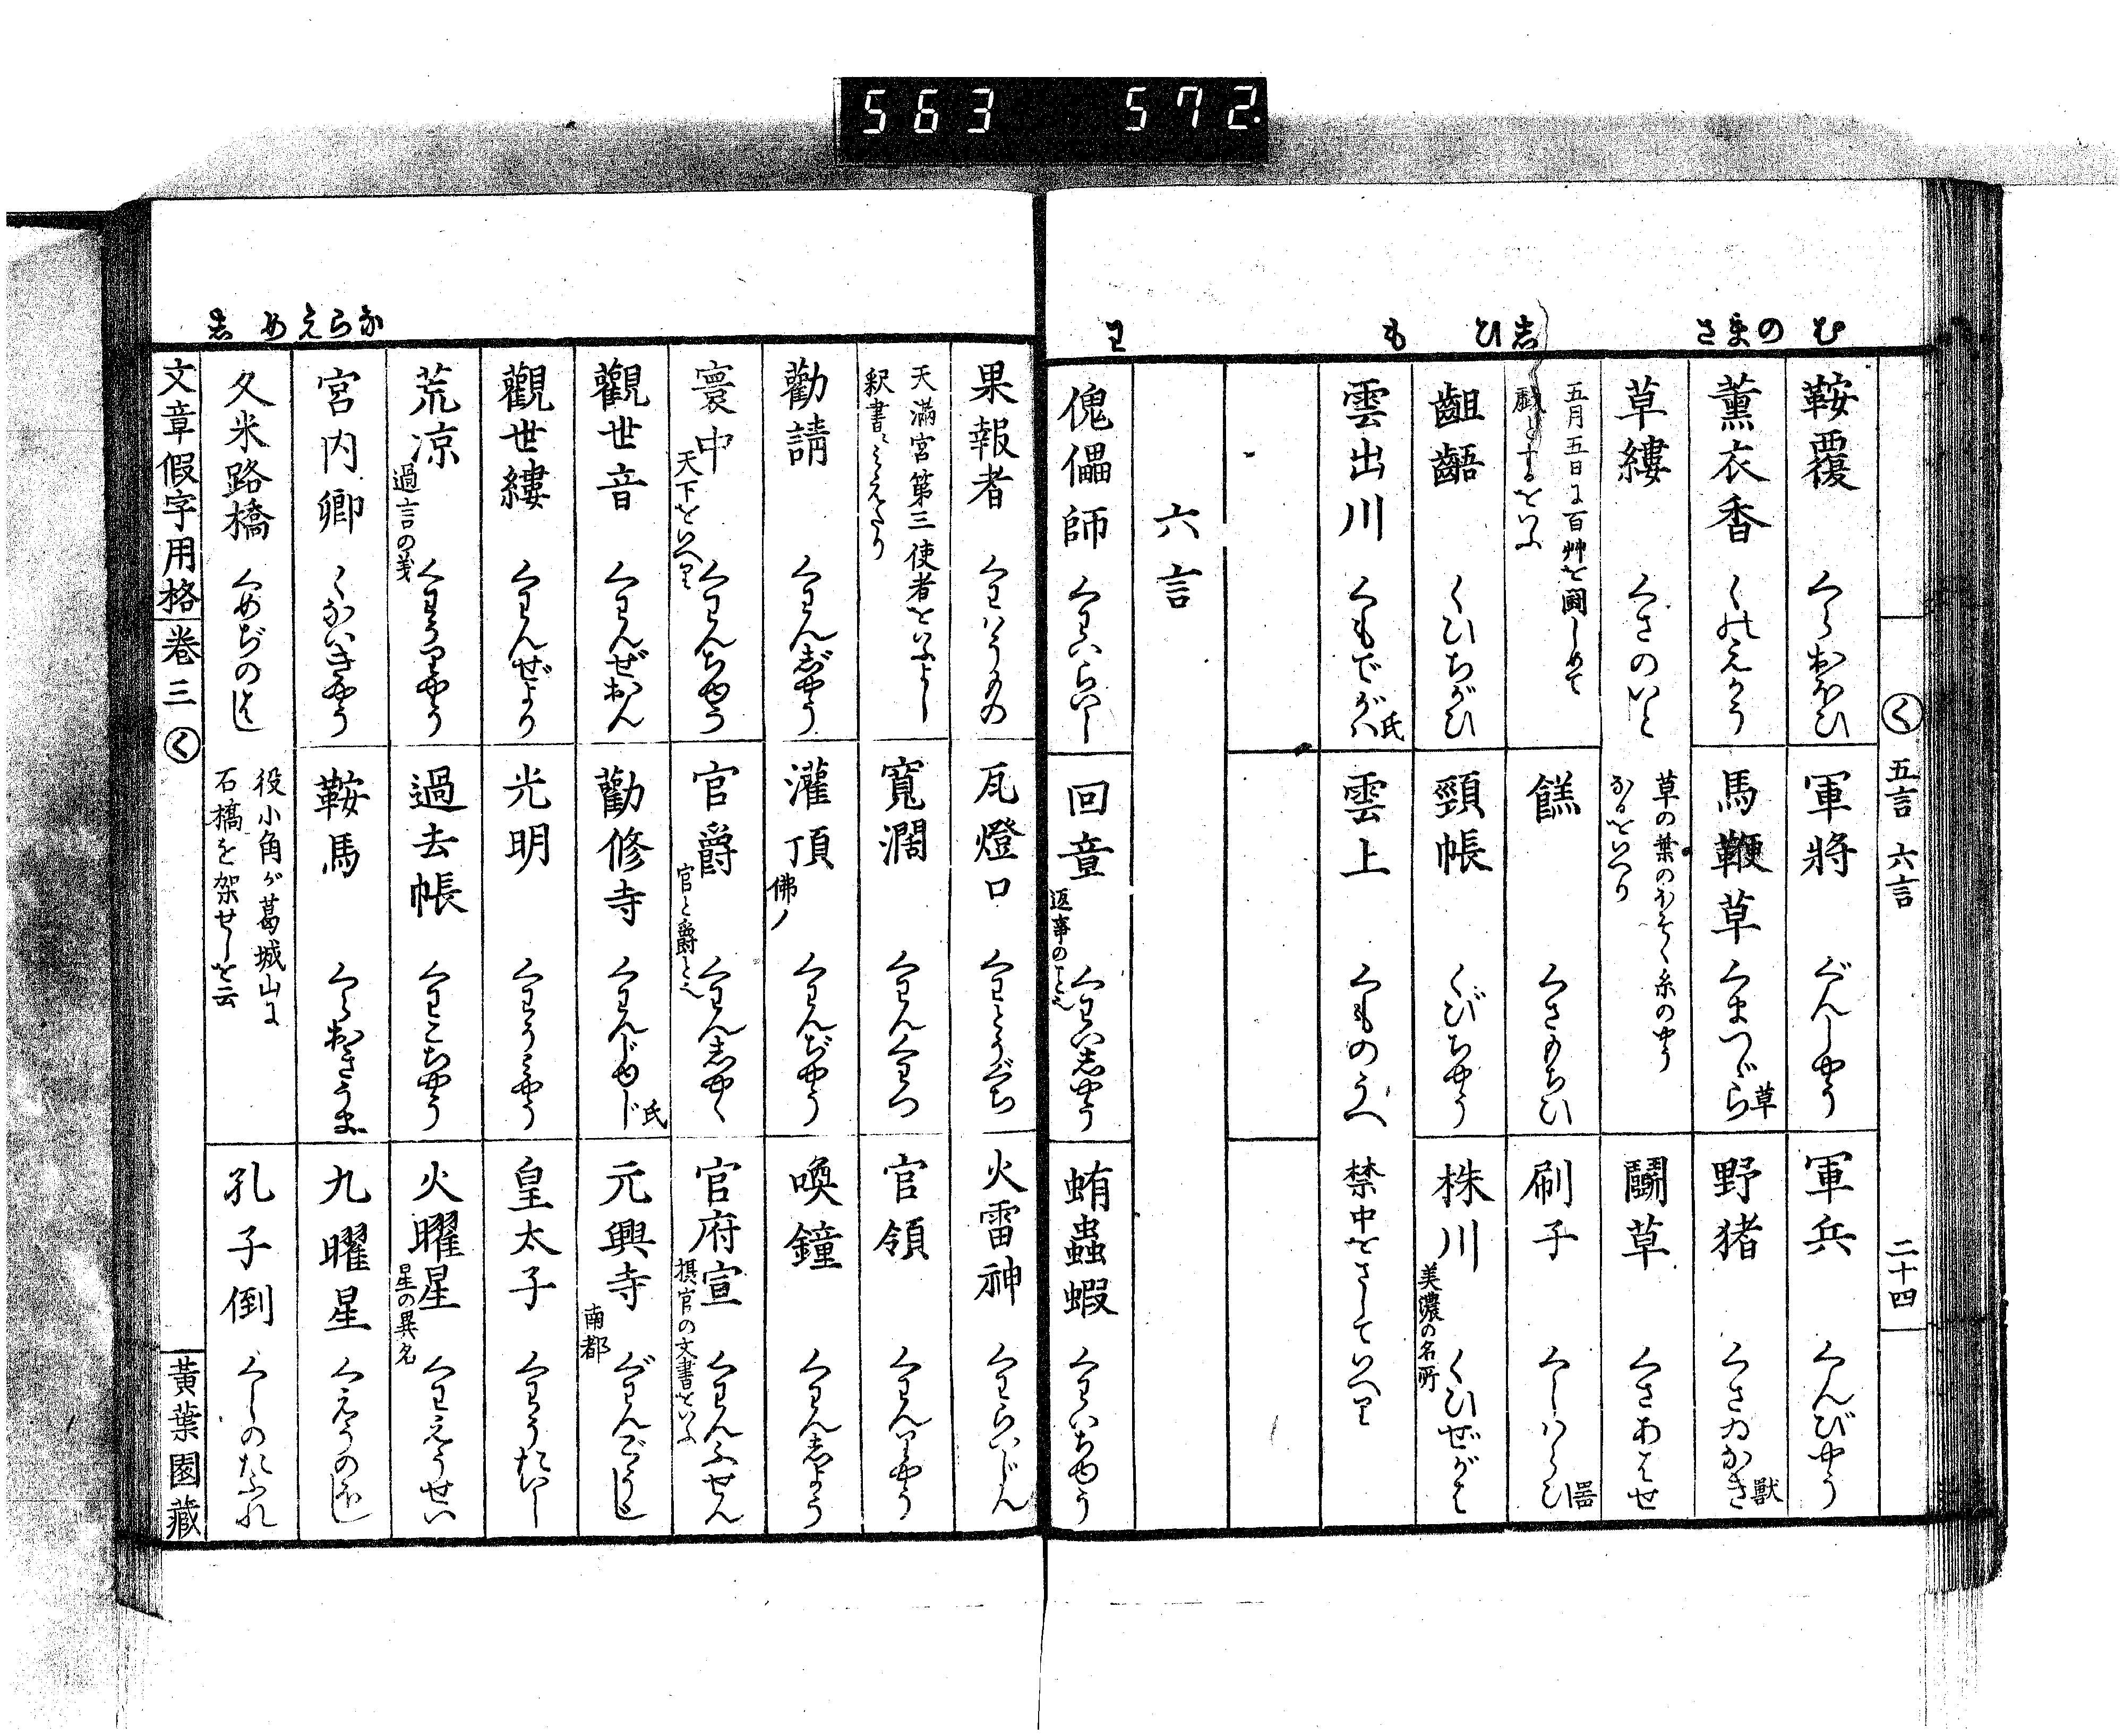 563 572.
む のまさ 志ひ も わ
く 五言 六言 二十四
鞍覆 くらおほひ
軍将 ぐんしやう
軍兵 くんびやう
薫衣香 くのえかう
馬鞭草 くまつゞら 草
野猪 くさゐかき 獣
草縷 くさのいと
草の葉のほそく糸のやう
なるをいへり
闘草 くさあはせ
五月五日に百艸を闘しめて
戯とするをいふ
餻 くさのもちひ
刷子 くしはらひ 噐
齟齬 くひちがひ
頸帳 くびちやう
株川 美濃の名所 くひぜがは
雲出川 くもでがは 氏
雲上 くものうへ
禁中をさしていへり
六言
傀儡師 くわいらいし
回章 返事のこと也 くわいしやう
蛕蟲蝦 くわいちやう
ならえめ志
果報者 くわはうもの
瓦燈口 くわとうぐち
火雷神 くわらいじん
天滿宮第三使者をいふよし
釈書ニみえたり
寛濶 くわんくわつ
官領 くわんりやう
勸請 くわんじやう
灌頂 佛ノ くわんぢやう
喚鐘 くわんしよう
寰中 天下をいへり くわんちやう
官爵 官と爵と也 くわんしやく
官府宣 摂官の文書をいふ くわんふせん
觀世音 くわんぜおん
勸修寺 くわんじゆじ 氏
元興寺 南都 ぐわんごうじ
觀世縷 くわんぜより
光明 くわうみやう
皇太子 くわうたいし
荒凉 過言の義 くわうりやう
過去帳 くわこちやう
火曜星 星の異名 くわえうせい
宮内卿 くないきやう
鞍馬 くらおきうま
九曜星 くえうのほし
久米路橋 くめぢのはし
役小角が葛城山に
石橋を架せしを云
孔子倒 くしのたふれ
文章假字用格 卷三 く 黄葉園藏